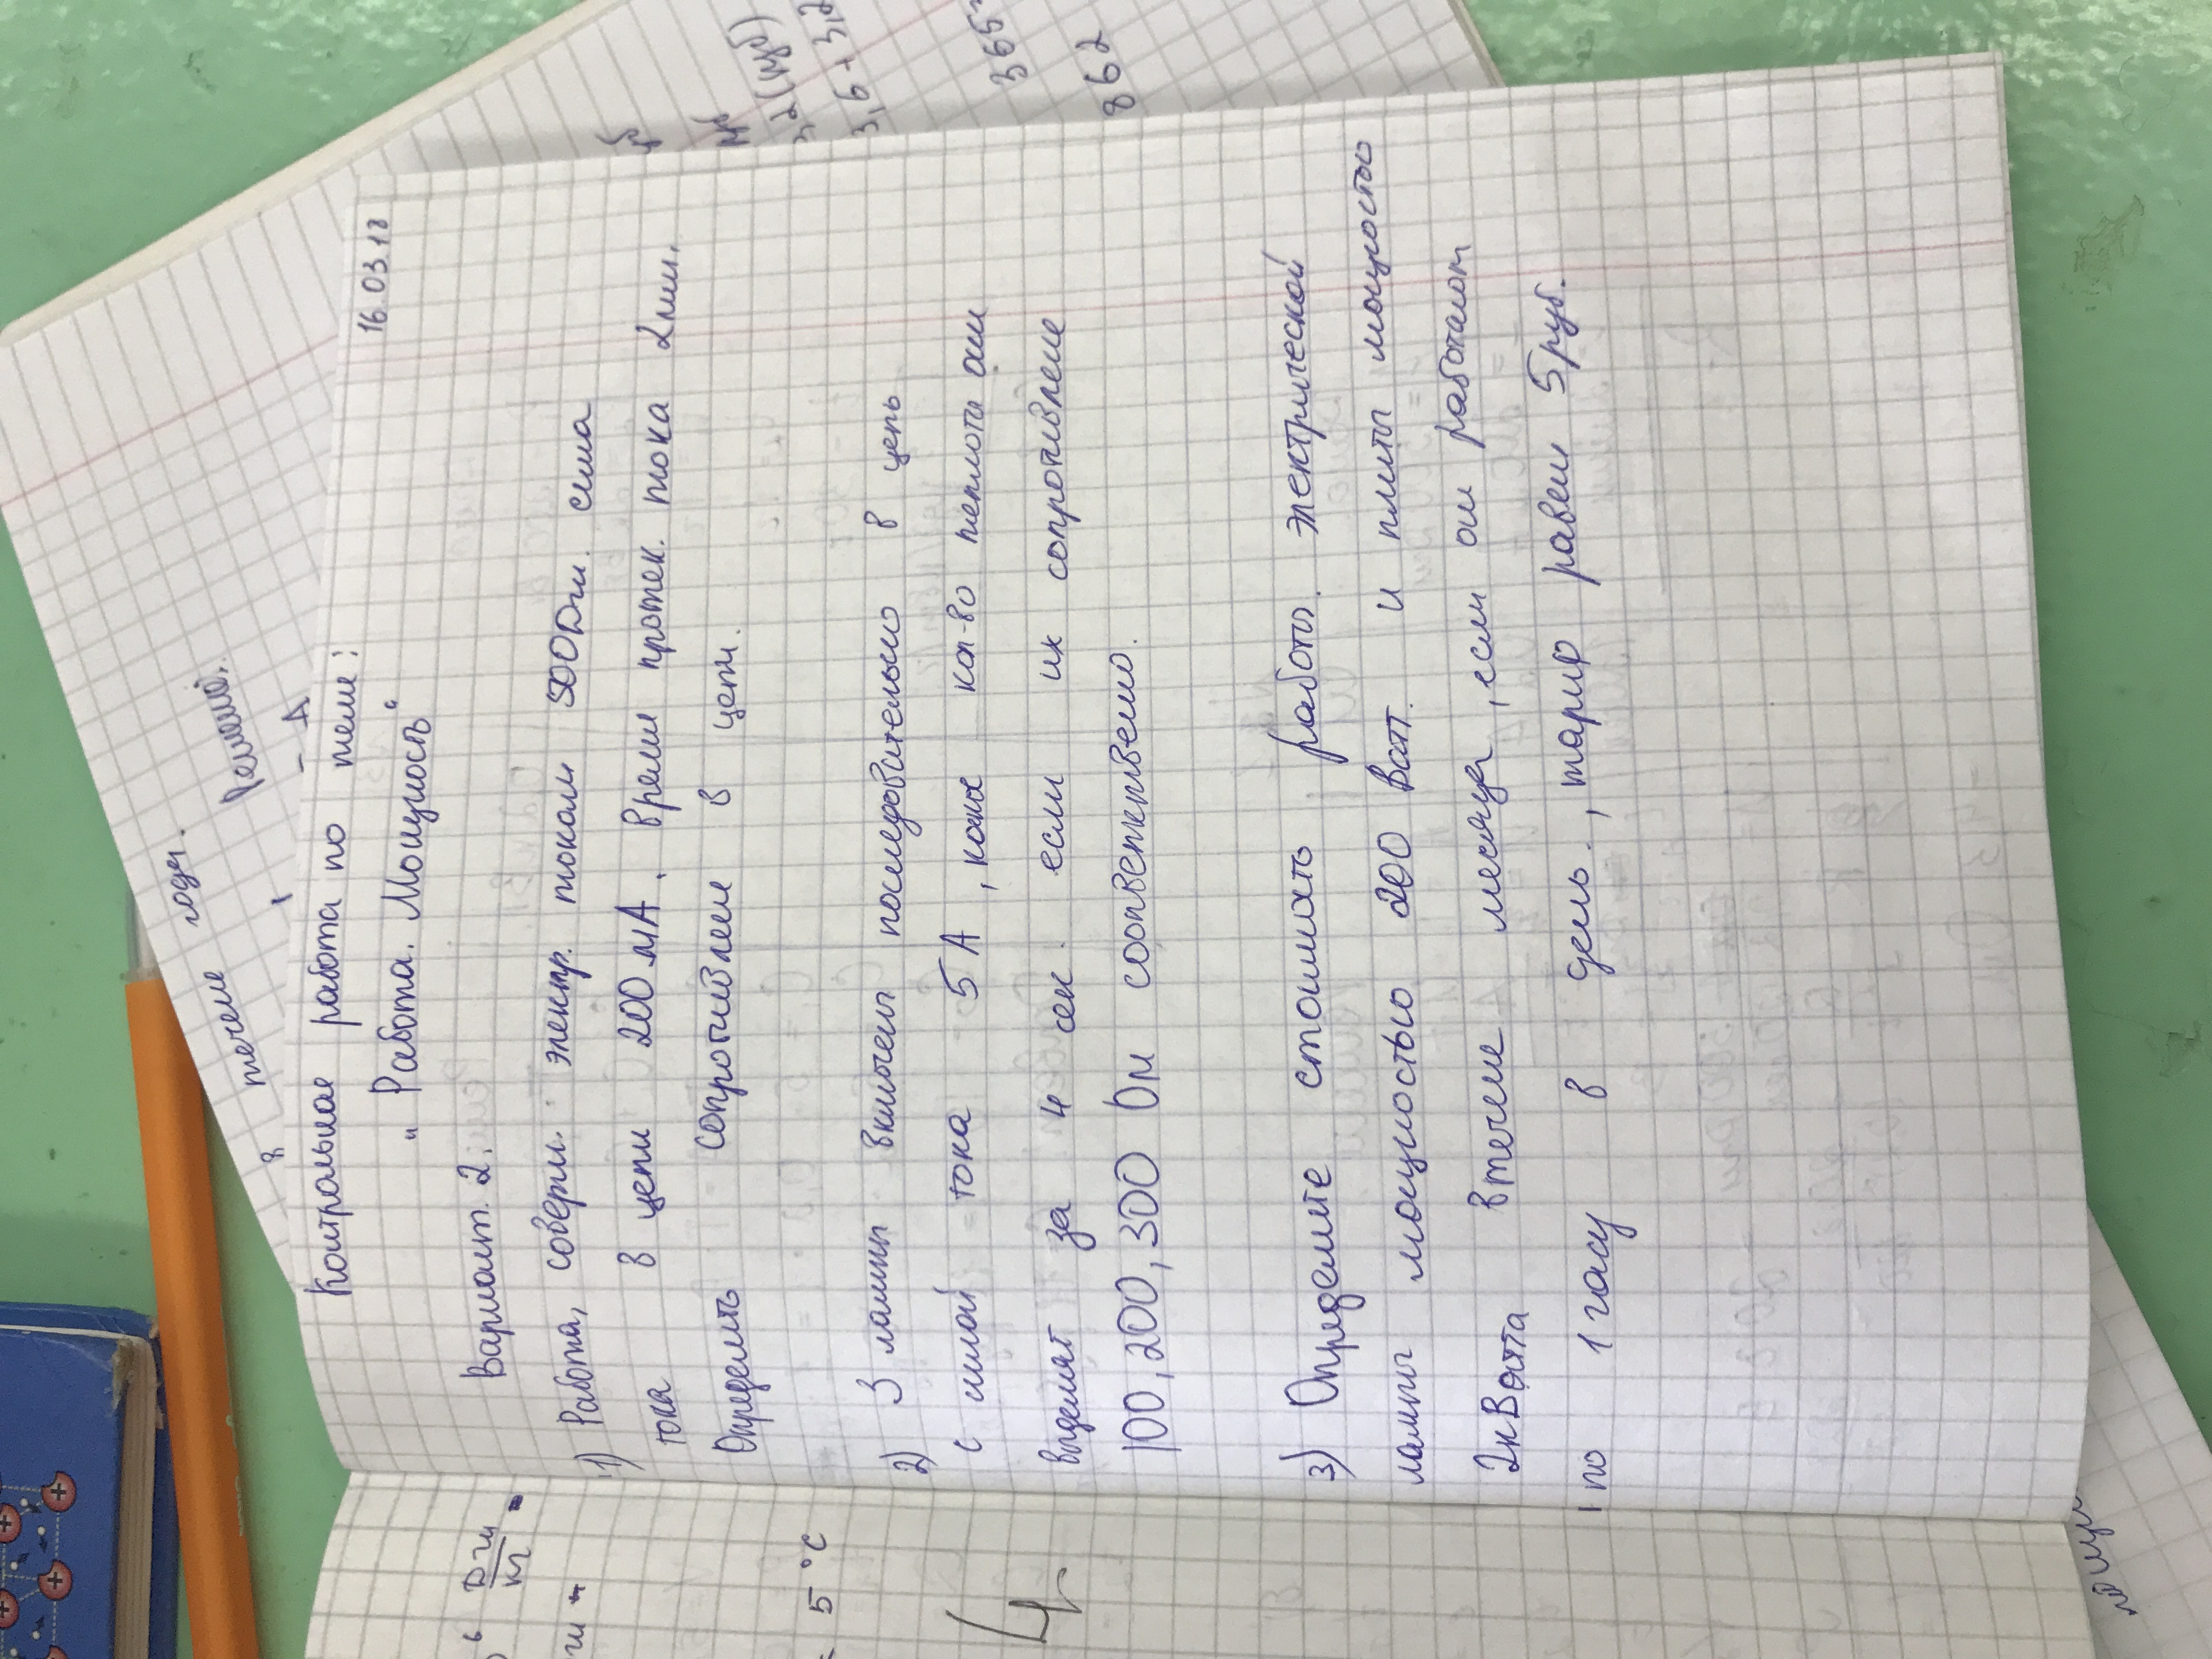 16.03.18
Контрольная работа по теме:
„Работа. Мощность“
Вариант 2.
1) Работа, соверш. электр. током 500Дж. сила
тока в цепи 200 мА. Время протек. тока 2мин.
Определить сопротивление в цепи.
2) 3 лампы включены последовательно в цепь
с силой тока 5 А, какое кол-во теплоты они
выделят за 4 сек. если их сопротивление
100, 200, 300 Ом соответственно.
3) Определите стоимость работы электрической
лампы мощностью 200 Ватт. и плиты мощностью
2кВатта втечение месяца, если они работают
по 1 часу в день., тариф равен 5руб.
в течение
Решение.
- А
3,2
365
862
Дж
кг
5 °С
4